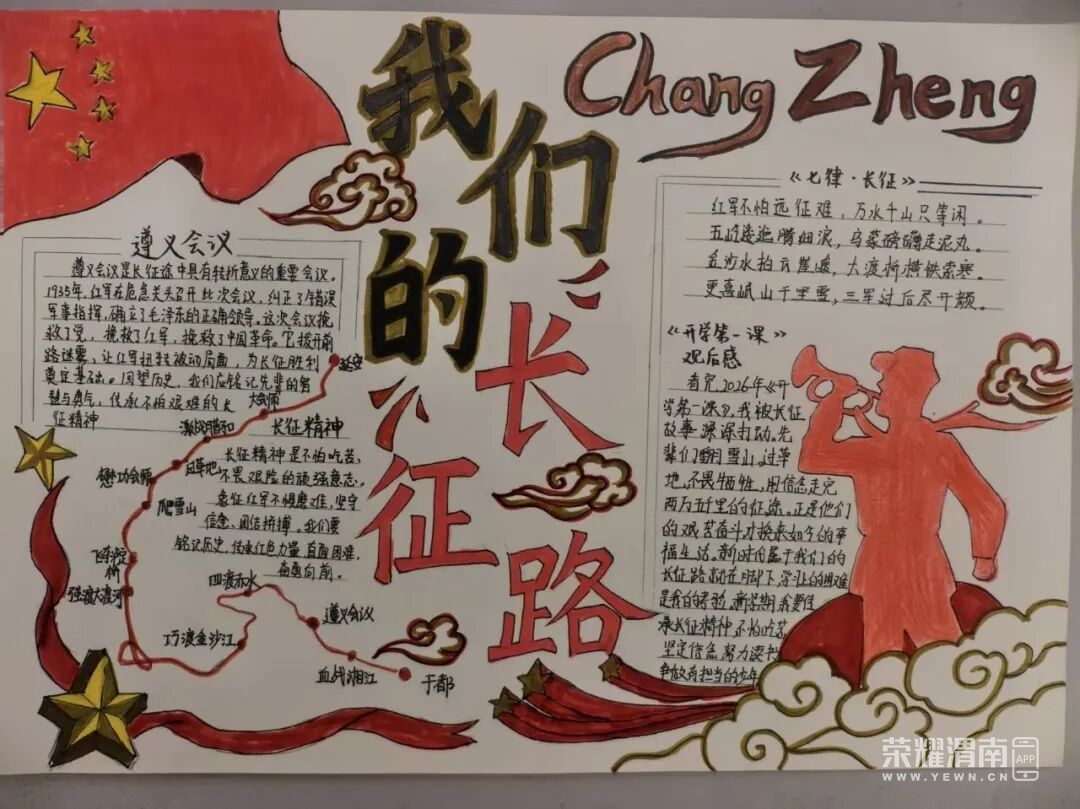 我们的
"长征路
Chang Zheng
遵义会议
遵义会议是长征途中具有转折意义的重要会议。
1935年,红军在危急关头召开此次会议,纠正了错误
军事指挥,确立了毛泽东的正确领导。这次会议挽
救了党,挽救了红军,挽救了中国革命。它拨开前
路迷雾,让红军扭转被动局面,为长征胜利
奠定基础。回望历史,我们应铭记先辈的智
慧与勇气,传承不怕艰难的长
征精神
长征精神
长征精神是不怕吃苦、
不畏艰险的顽强意志。
象征红军不惧磨难,坚守
信念、团结拼搏。我们要
铭记历史,传承红色力量,直面困难,
奋勇向前。
延安
大会师
激战腊子口
过草地
懋功会师
爬雪山
飞夺泸定桥
强渡大渡河
巧渡金沙江
四渡赤水
遵义会议
血战湘江
于都
《七律·长征》
红军不怕远征难,万水千山只等闲。
五岭逶迤腾细浪,乌蒙磅礴走泥丸。
金沙水拍云崖暖,大渡桥横铁索寒。
更喜岷山千里雪,三军过后尽开颜。
《开学第一课》
观后感
看完2026年《开
学第一课》,我被长征
故事深深打动。先
辈们翻雪山、过草
地,不畏牺牲,用信念走完
两万五千里的征途。正是他们
的艰苦奋斗才换来如今的幸
福生活。新时代属于我们的
长征路就在脚下,学习上的困难
是我的考验。新学期,我要传
承长征精神,不怕吃苦
坚定信念,努力读书
争做有担当的少年
荣耀渭南 APP
WWW.YEWN.CN